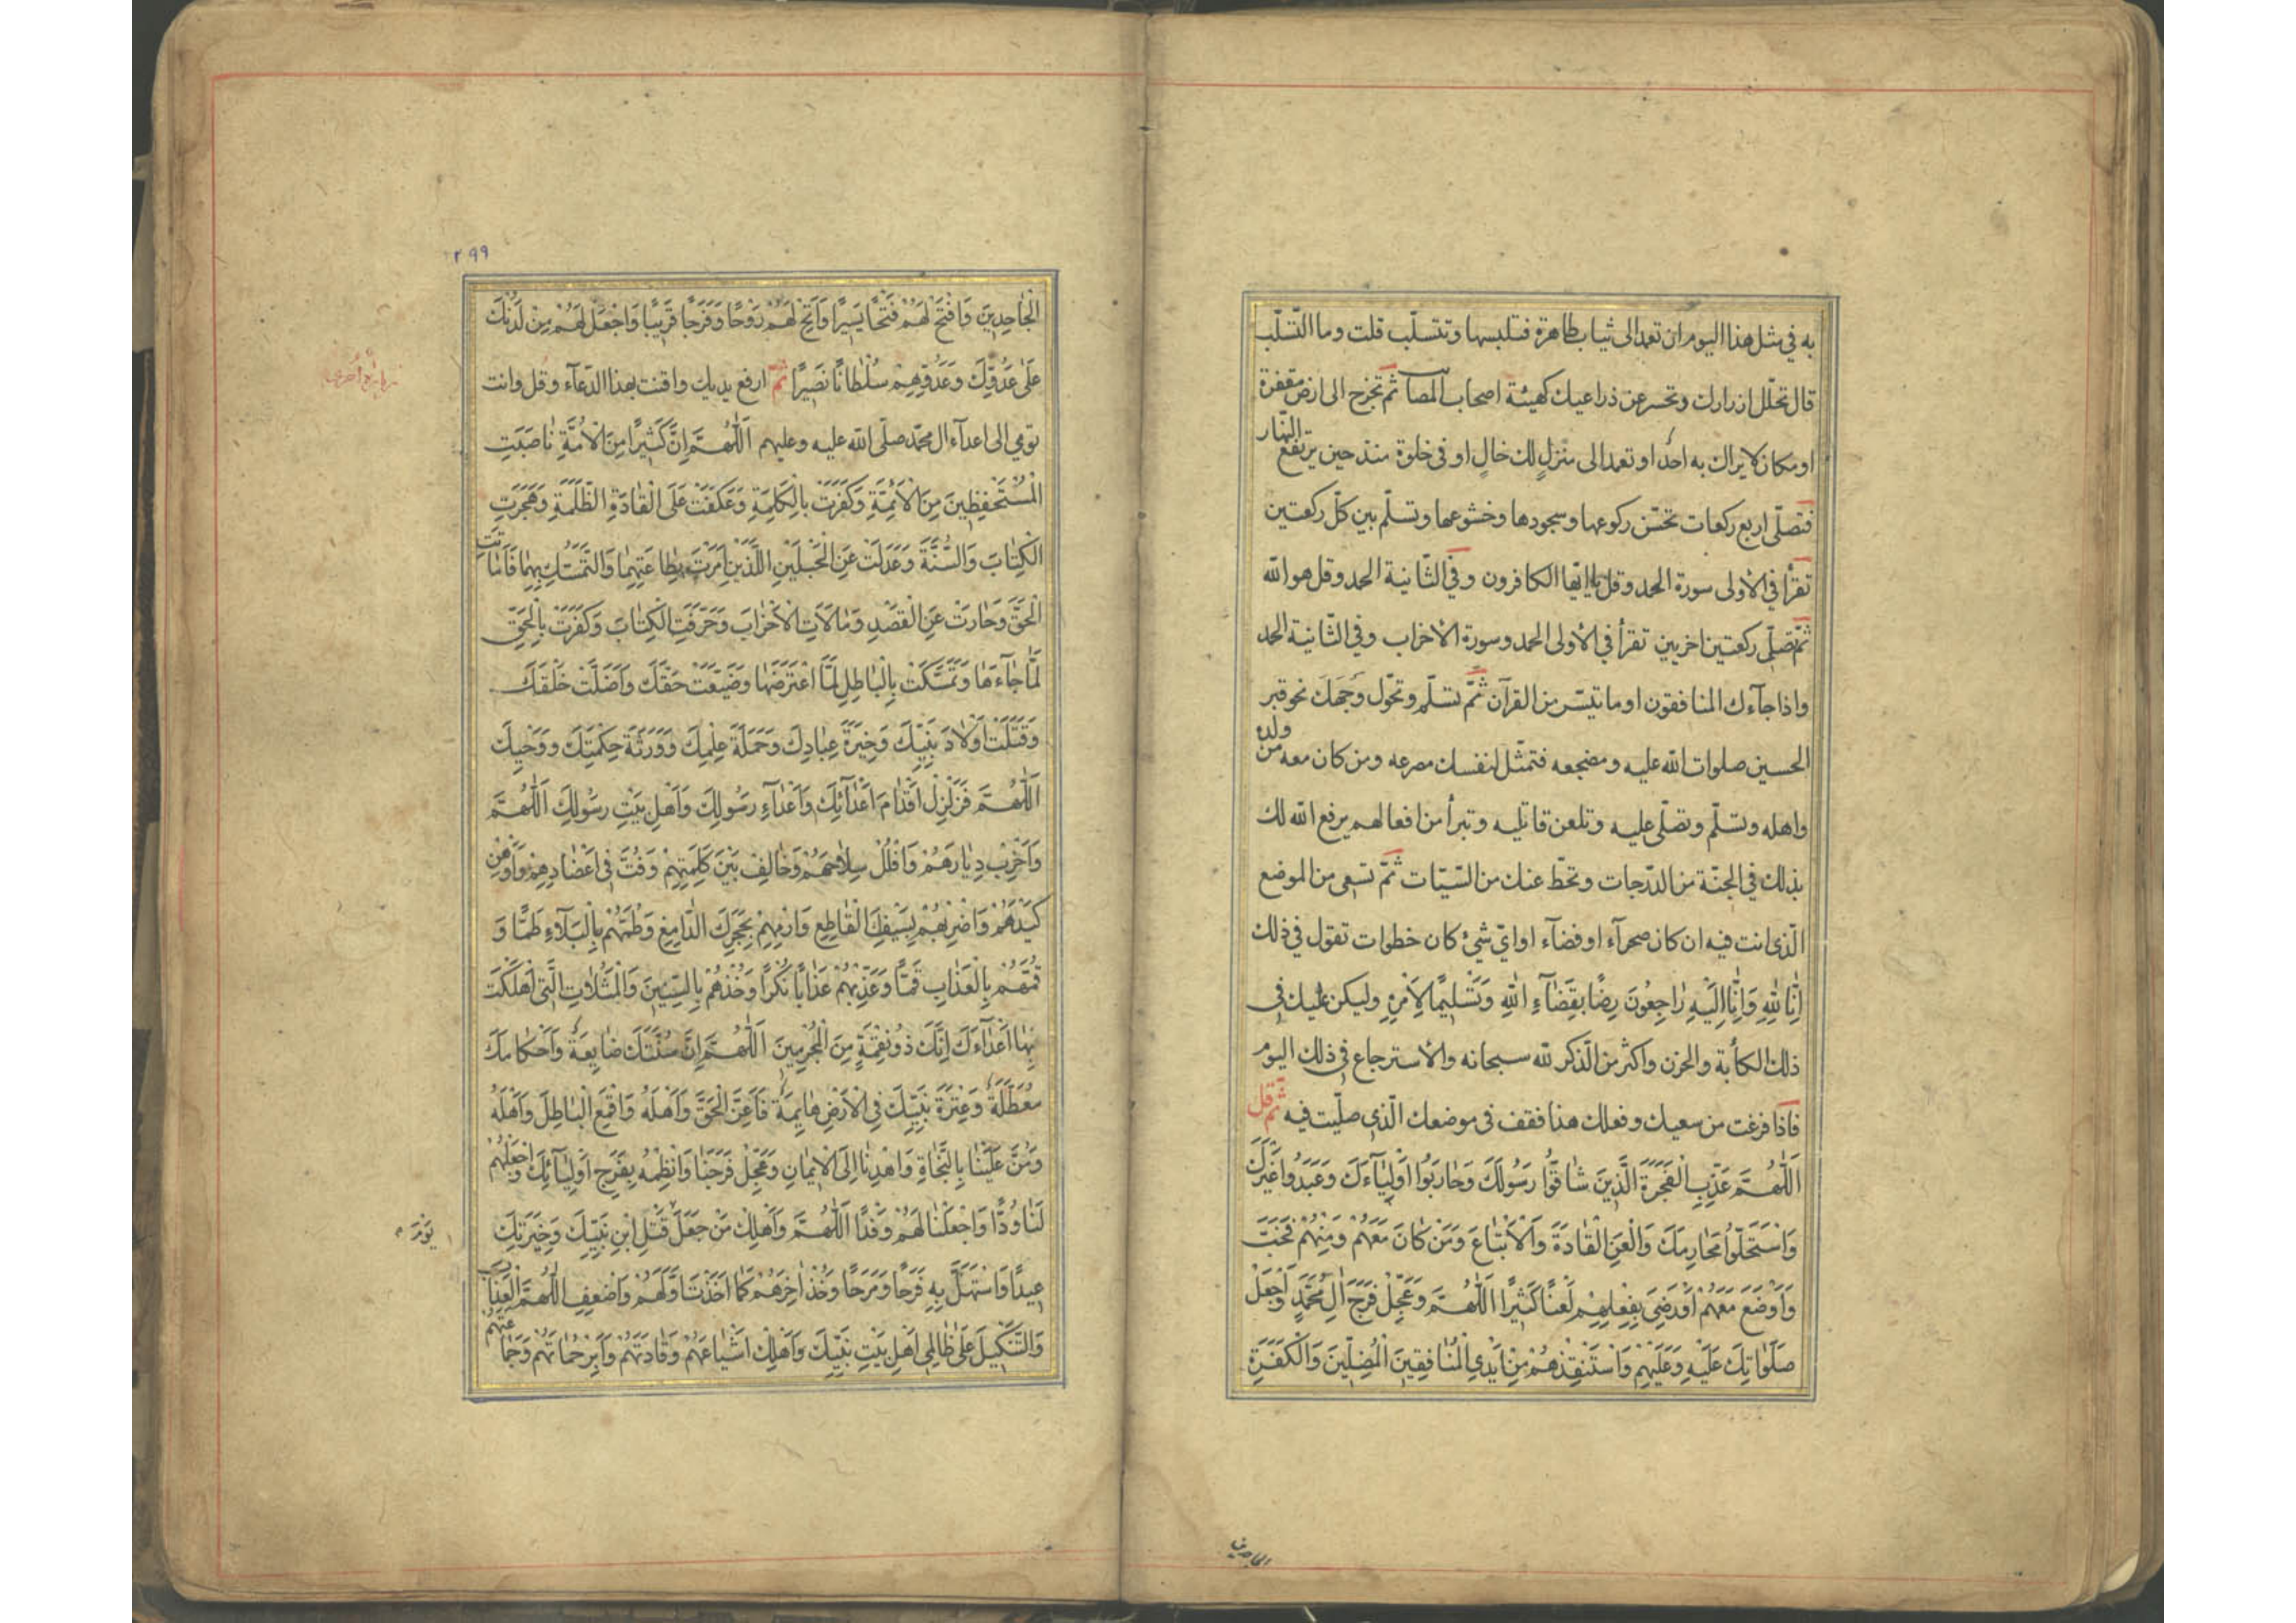 به في مثل هذا اليوم ان تعمد الى ثياب طاهرة فتلبسها وتتسلّب قلت وما التّسلّب
قال تحلّل ازرارك وتحسر عن ذراعيك كهيئة اصحاب المصائب ثمّ تخرج الى ارض مقفرة
او مكان لا يراك به احد او تعمد الى منزل لك خالٍ او في خلوة منذ حين يرتفع النّهار
فتصلّى اربع ركعات تحسّن ركوعها وسجودها وخشوعها وتسلّم بين كلّ ركعتين
تقرأ في الأولى سورة الحمد وقل يا ايّها الكافرون وفي الثّانية الحمد وقل هو الله
ثمّ تصلّى ركعتين اخريين تقرأ في الأولى الحمد وسورة الأحزاب وفي الثّانية الحمد
واذا جآءك المنافقون او ما تيسّر من القرآن ثمّ تسلّم وتحوّل وجهك نحو قبر
الحسين صلوات الله عليه ومضجعه فتمثّل لنفسك مصرعه ومن كان معه من ولده
واهله وتسلّم وتصلّى عليه وتلعن قاتليه وتبرأ من افعالهم يرفع الله لك
بذلك في الجنّة من الدّرجات وتحطّ عنك من السّيّات ثمّ تسعى من الموضع
الّذى انت فيه ان كان صحرآء او فضآء او ايّ شئ كان خطوات تقول في ذلك
اِنَّا لِلّٰهِ وَاِنَّا اِلَيْهِ رٰاجِعُونَ رِضًا بِقَضٰآءِ اللهِ وَتَسْلِيمًا لِاَمْرِهِ وليكن عليك في
ذلك الكأبة والحزن واكثر من الّذكر لله سبحانه والأسترجاع في ذلك اليوم
فاذا فرغت من سعيك وفعلك هذا فقف في موضعك الّذى صلّيت فيه ثمّ قل
اَللّٰهُمَّ عَذِّبِ الْفَجَرَةَ الَّذِينَ شٰاقُّوا رَسُولَكَ وَحٰارَبُوا اَوْلِيٰآءَكَ وَعَبَدُوا غَيْرَكَ
وَاسْتَحَلُّوا مَحٰارِمَكَ وَالْعَنِ الْقٰادَةَ وَالْاَتْبٰاعَ وَمَنْ كٰانَ مَعَهُمْ وَمِنْهُمْ فَخَبَّ
وَاَوْضَعَ مَعَهُمْ اَوْ رَضِيَ بِفِعْلِهِمْ لَعْنًا كَثِيرًا اَللّٰهُمَّ وَعَجِّلْ فَرَجَ اٰلِ مُحَمَّدٍ وَاجْعَلْ
صَلَوٰاتِكَ عَلَيْهِ وَعَلَيْهِمْ وَاسْتَنْقِذْهُمْ مِنْ اَيْدِي الْمُنٰافِقِينَ الْمُضِلِّينَ وَالْكَفَرَةِ
الجاحدين
٢٩٩
الْجٰاحِدِينَ وَافْتَحْ لَهُمْ فَتْحًا يَسِيرًا وَاَتِحْ لَهُمْ رَوْحًا وَفَرَجًا قَرِيبًا وَاجْعَلْ لَهُمْ مِنْ لَدُنْكَ
عَلٰى عَدُوِّكَ وَعَدُوِّهِمْ سُلْطٰانًا نَصِيرًا ثمّ ارفع يديك واقنت بهذا الدّعآء وقل وانت
تومي الى اعدآء ال محمّد صلّى الله عليه وعليهم اَللّٰهُمَّ اِنَّ كَثِيرًا مِنَ الْاُمَّةِ نٰاصَبَتِ
الْمُسْتَحْفَظِينَ مِنَ الْاَئِمَّةِ وَكَفَرَتْ بِالْكَلِمَةِ وَعَكَفَتْ عَلَى الْقٰادَةِ الظَّلَمَةِ وَهَجَرَتِ
الْكِتٰابَ وَالسُّنَّةَ وَعَدَلَتْ عَنِ الْحَبْلَيْنِ اللَّذَيْنِ اَمَرْتَ بِطٰاعَتِهِمٰا وَالتَّمَسُّكِ بِهِمٰا فَاَمٰاتَتِ
الْحَقَّ وَحٰارَتْ عَنِ الْقَصْدِ وَمٰالَاَتِ الْاَحْزٰابَ وَحَرَّفَتِ الْكِتٰابَ وَكَفَرَتْ بِالْحَقِّ
لَمّٰا جٰآءَهٰا وَتَمَسَّكَتْ بِالْبٰاطِلِ لَمَّا اعْتَرَضَهٰا وَضَيَّعَتْ حَقَّكَ وَاَضَلَّتْ خَلْقَكَ
وَقَتَلَتْ اَوْلٰادَ نَبِيِّكَ وَخِيَرَةَ عِبٰادِكَ وَحَمَلَةَ عِلْمِكَ وَوَرَثَةَ حِكْمَتِكَ وَوَحْيِكَ
اَللّٰهُمَّ فَزَلْزِلْ اَقْدٰامَ اَعْدٰآئِكَ وَاَعْدٰآءِ رَسُولِكَ وَاَهْلِ بَيْتِ رَسُولِكَ اَللّٰهُمَّ
وَاَخْرِبْ دِيٰارَهُمْ وَافْلُلْ سِلٰاحَهُمْ وَخٰالِفْ بَيْنَ كَلِمَتِهِمْ وَفُتَّ فِي اَعْضٰادِهِمْ وَاَوْهِنْ
كَيْدَهُمْ وَاضْرِبْهُمْ بِسَيْفِكَ الْقٰاطِعِ وَارْمِهِمْ بِحَجَرِكَ الدّٰامِغِ وَطُمَّهُمْ بِالْبَلٰآءِ طَمًّا وَ
قُمَّهُمْ بِالْعَذٰابِ قَمًّا وَعَذِّبْهُمْ عَذٰابًا نُكْرًا وَخُذْهُمْ بِالسِّنِينَ وَالْمَثُلٰاتِ الَّتِي اَهْلَكْتَ
بِهٰا اَعْدٰآءَكَ اِنَّكَ ذُو نِقْمَةٍ مِنَ الْمُجْرِمِينَ اَللّٰهُمَّ اِنَّ سُنَّتَكَ ضٰايِعَةٌ وَاَحْكٰامَكَ
مُعَطَّلَةٌ وَعِتْرَةَ نَبِيِّكَ فِي الْاَرْضِ هٰايِمَةٌ فَاَعِنِ الْحَقَّ وَاَهْلَهُ وَاقْمَعِ الْبٰاطِلَ وَاَهْلَهُ
وَمُنَّ عَلَيْنٰا بِالنَّجٰاةِ وَاهْدِنٰا اِلَى الْاِيمٰانِ وَعَجِّلْ فَرَجَنٰا وَانْظِمْهُ بِفَرَجِ اَوْلِيٰآئِكَ وَاجْعَلْهُمْ
لَنٰا وُدًّا وَاجْعَلْنٰا لَهُمْ وَفْدًا اَللّٰهُمَّ وَاَهْلِكْ مَنْ جَعَلَ قَتْلَ ابْنِ نَبِيِّكَ وَخِيَرَتِكَ
يَوْمَ
عِيدًا وَاسْتَهَلَّ بِهِ فَرَحًا وَمَرَحًا وَخُذْ اٰخِرَهُمْ كَمٰا اَخَذْتَ اَوَّلَهُمْ وَاَضْعِفِ اللّٰهُمَّ الْعَذٰابَ
وَالتَّنْكِيلَ عَلٰى ظٰالِمِي اَهْلِ بَيْتِ نَبِيِّكَ وَاَهْلِكْ اَشْيٰاعَهُمْ وَقٰادَتَهُمْ وَاَبِرْ حُمٰاتَهُمْ وَجَمٰاعَتَهُمْ